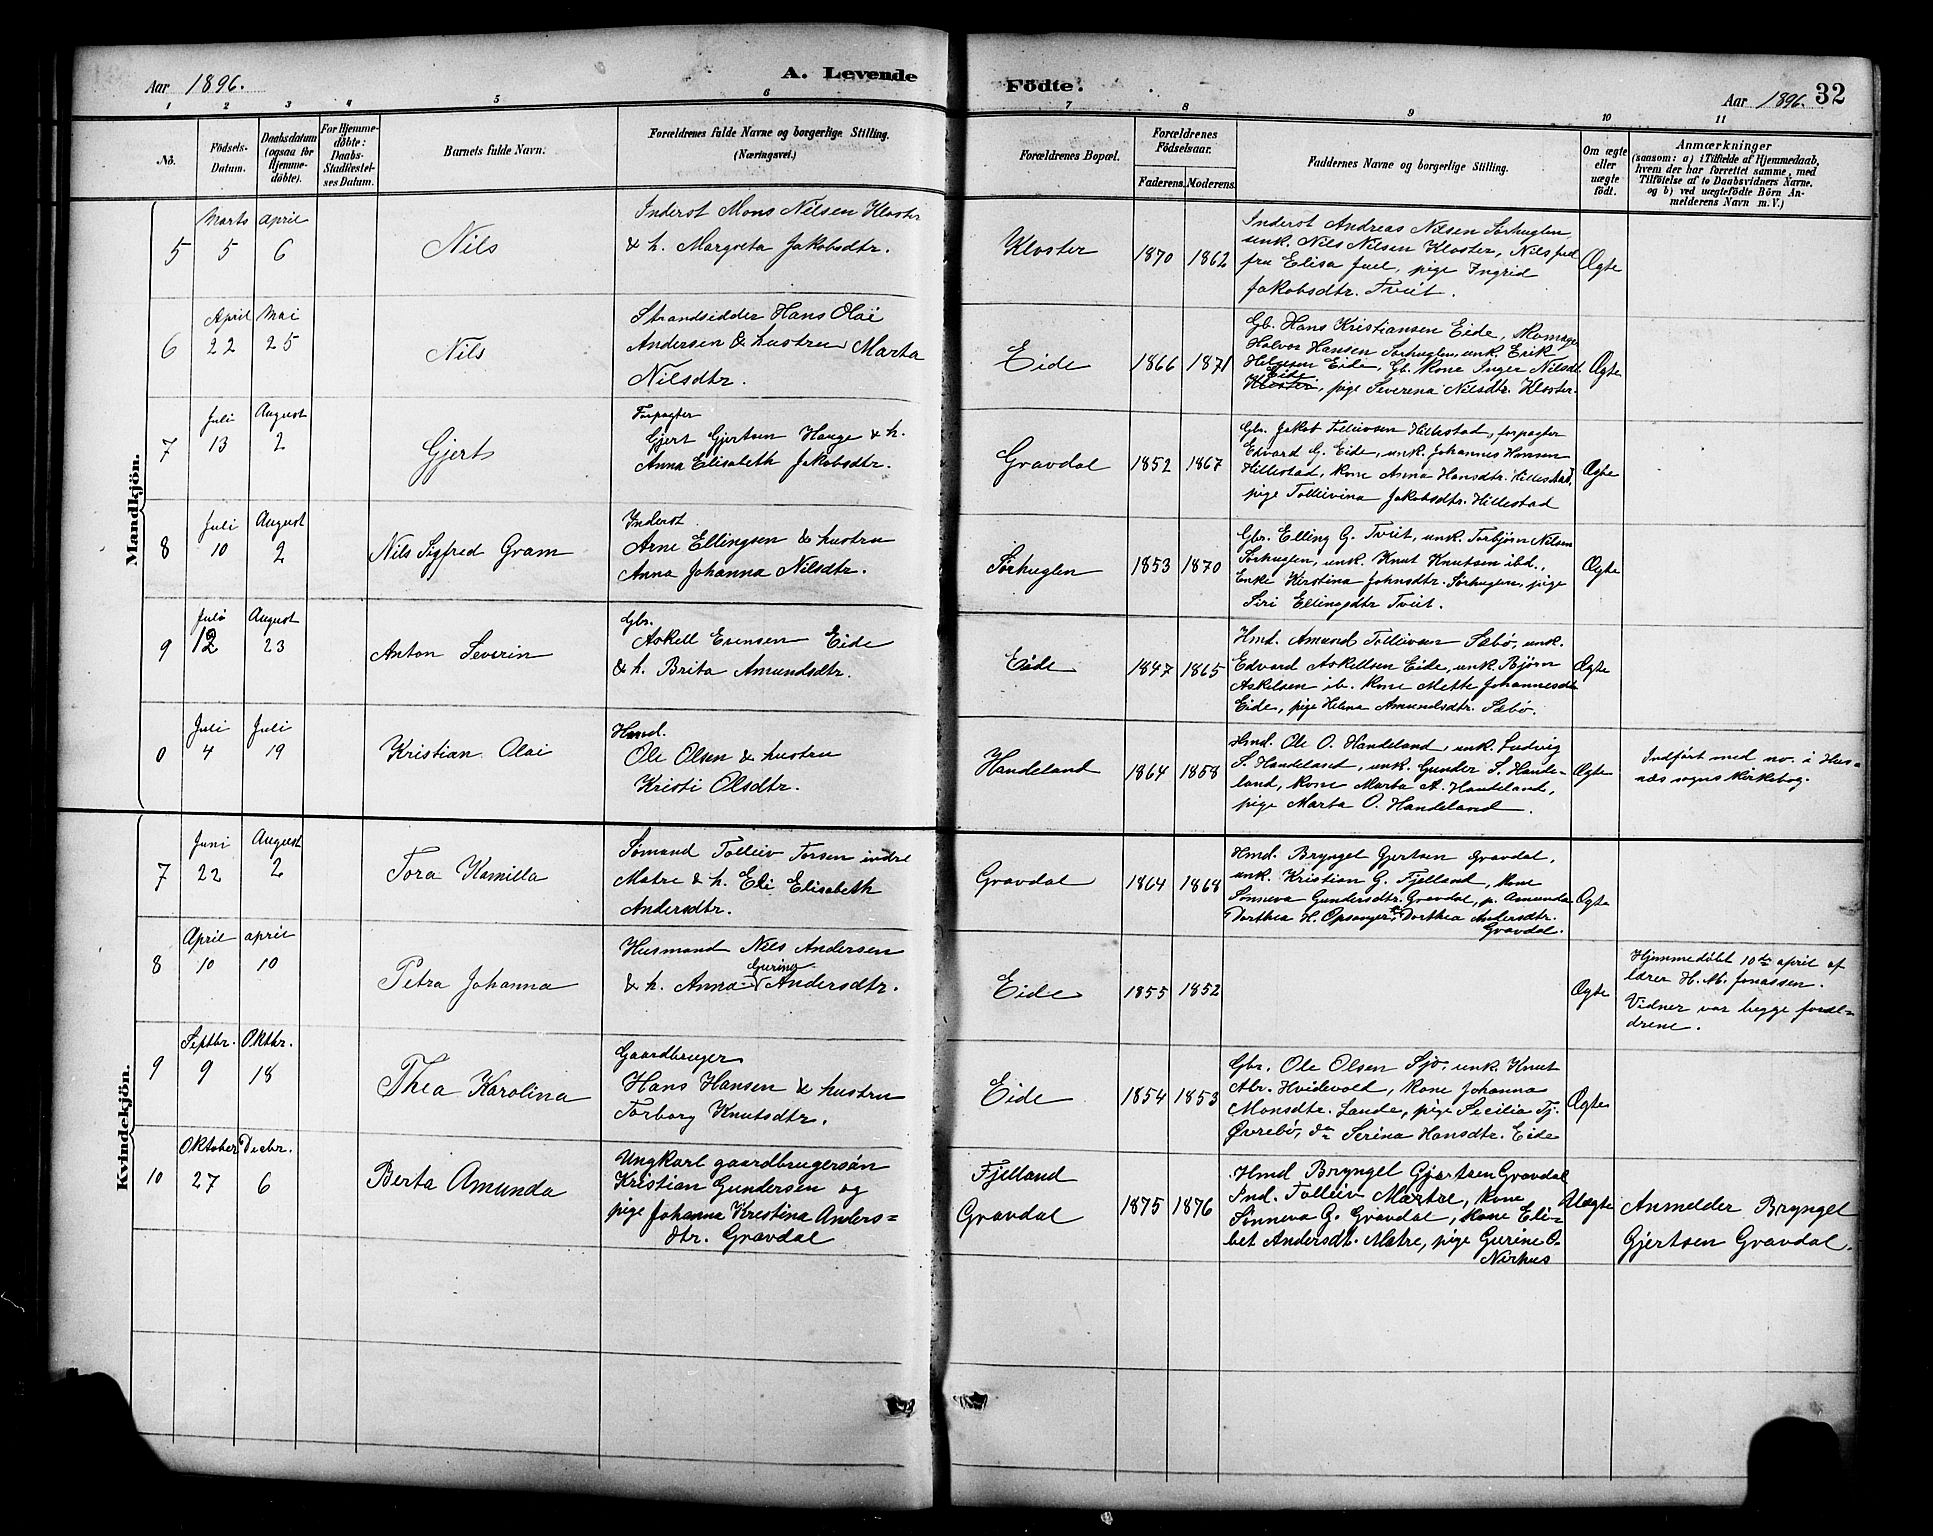 Aar 1896.
A. Levende
Födte.
Aar 1896. 32
1 2 3 4 5 6 7 8 9 10 11
No.
Födsels-
Datum.
Daabsdatum
(ogsaa for
Hjemme-
døbte).
For Hjemme-
døbte:
Daabs-
Stadfæstel-
ses Datum.
Barnets fulde Navn.
Forældrenes fulde Navne og borgerlige Stilling.
(Næringsvei.)
Forældrenes Bopæl.
Forældrenes
Födselsaar.
Faderens. Moderens.
Faddernes Navne og borgerlige Stilling.
Om ægte
eller
uægte
födt.
Anmærkninger
(saasom: a) i Tilfælde af Hjemmedaab,
hvem der har forrettet samme, med
Tilföielse af to Daabsvidners Navne.
og b) ved uægtefödte Börn An-
melderens Navn m. V.)
Mandkjön.
5
Marts
5
April
6
Nils
Inderst Mons Nilsen Kloster
& h. Margreta Jakobsdtr.
Kloster
1870 1862
Inderst Andreas Nilsen Sørhuglen
unk. Nils Nilsen Kloster,
fru Elisa Juel, pige Ingrid
Jakobsdtr. Tveit.
Ægte
6
April
22
Mai
25
Nils
Strandsidder Hans Olai
Andersen & hustru Marta
Nilsdtr.
Eide
1866 1871
Gb. Hans Kristiansen Eide, skomager
Halvor Hansen Sørhuglen, unk. Erik
Helgesen Eide, Gb. kone Inger Nilsdt.
Eide
Kloster, pige Severena Nilsdtr. Kloster.
Ægte
7
Juli
13
August
2
Gjert
Forpagter
Gjert Gjertsen Hauge & h.
Anna Elisabeth Jakobsdtr.
Gravdal
1852 1867
Gbr. Jakob Tolleivsen Hillestad, forpagter
Edvard G. Eide, unk. Johannes Hansen
Hillestad, kone Anna Hansdtr. Hillestad,
pige Tolleivina Jakobsdtr. Hillestad
Ægte
8
Juli
10
August
2
Nils Sigfred Gram
Inderst
Arne Ellingsen & hustru
Anna Johanna Nilsdtr.
Sørhuglen
1853 1870
Gbr. Elling G. Tveit, unk. Torbjørn Nilsen
Sørhuglen, unk. Knut Knutsen ibd.,
Enke Kerstina Johnsdtr. Sørhuglen, pige
Siri Ellingsdtr Tveit.
Ægte
9
Juli
12
August
23
Anton Severin
Gbr.
Askell Erensen Eide
& h. Brita Amundsdtr.
Eide
1847 1865
Hmd. Amund Tolleivsen Sæbø, unk.
Edvard Askellsen Eide, unk. Bjørn
Askelsen ib. kone Mette Johannesdtr
Eide, pige Helena Amundsdtr. Sæbø.
Ægte
0
Juli
4
Juli
19
Kristian Olai
Hmd.
Ole Olsen & hustru
Kristi Olsdtr.
Handeland
1864 1858
Hmd. Ole O. Handeland, unk. Ludvig
S. Handeland, unk. Gunder S. Hande-
land, kone Marta A. Handeland,
pige Marta O. Handeland.
Ægte
Indført med no. i Hus-
næs sogns kirkebog.
Kvindekjön.
7
Juni
22
August
2
Tora Kamilla
Sømand Tolleiv Torsen indre
Matre & h. Eli Elisabeth
Andersdtr.
Gravdal
1864 1868
Hmd. Bryngel Gjertsen Gravdal,
unk. Kristian G. Fjelland, kone
Sønneva Gundersdtr. Gravdal, p. Amunda
Dorthea H. Opsanger, Dorthea Andersdtr.
Gravdal.
Ægte
8
April
10
april
10
Petra Johanna
Husmand Nils Andersen
Gurina
& h. Anna Andersdtr.
Eide
1855 1852
Ægte
Hjemmedøbt 10de april af
lærer H. M. Jonassen.
Vidner var begge foræl-
drene.
9
Septbr.
9
Oktbr.
18
Thea Karolina
Gaardbruger
Hans Hansen & hustru
Torborg Knutsdtr.
Eide
1854 1853
Gbr. Ole Olsen Sjo, unk. Knut
Abr. Hvidevold, kone Johanna
Monsdtr. Lande, pige Secilia Tj.
Øvrebø, do Serina Hansdtr. Eide
Ægte
10
Oktober
27
Decbr.
6
Berta Amunda
Ungkarl gaardbrugersön
Kristian Gundersen og
pige Johanna Kristina Anders=
dtr. Gravdal
Fjelland
Gravdal
1875 1876
Hmd Bryngel Gjertsen Gravdal
Ind. Tolleiv Martre, kone
Sønneva G. Gravdal, kone Eli-
bet Andersdt. Matre, pige Gurine O.
Nerhus
Uægte
Anmelder Bryngel
Gjertsen Gravdal.